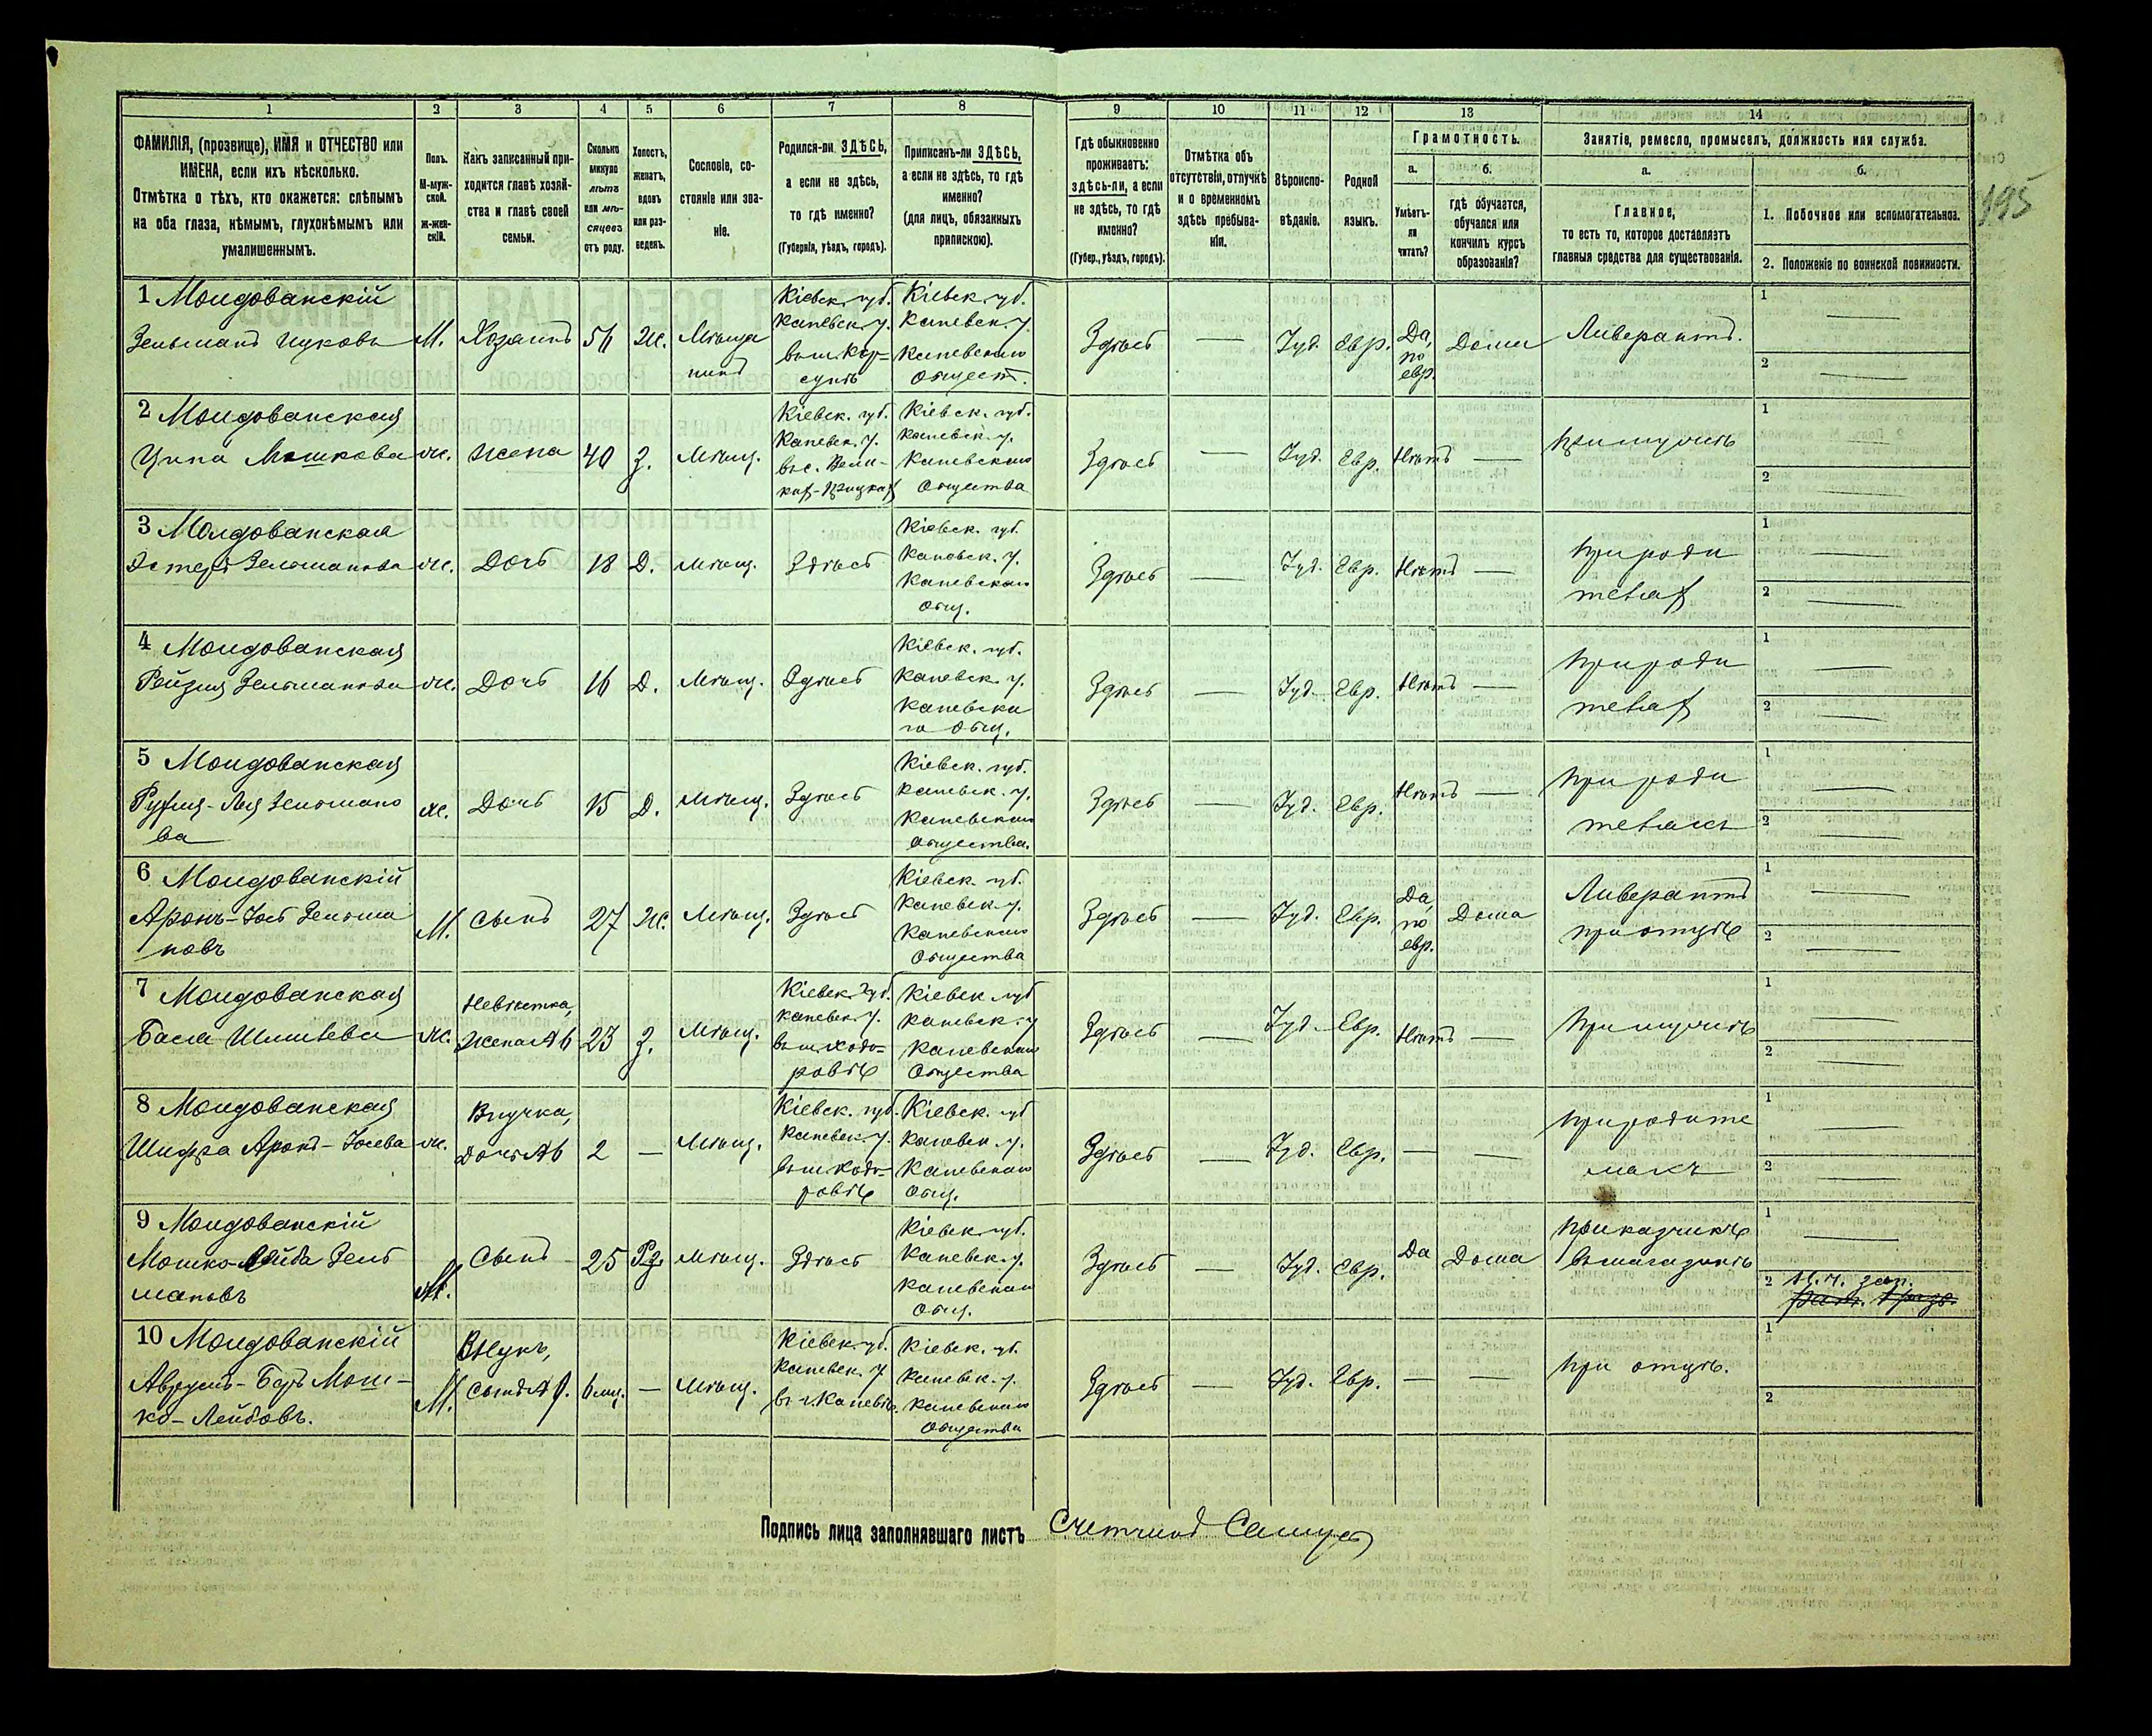 1 2 3 4 5 6 7 8 9 10 11 12 13 14
ФАМИЛІЯ, (прозвище), ИМЯ и ОТЧЕСТВО или
ИМЕНА, если ихъ нѣсколько.
Отмѣтка о тѣхъ, кто окажется: слѣпымъ
на оба глаза, нѣмымъ, глухонѣмымъ или
умалишеннымъ.
Полъ.
М-муж-
ской.
ж-жен-
скій.
Какъ записанный при-
ходится главѣ хозяй-
ства и главѣ своей
семьи.
Сколько
минуло
лѣтъ
или мѣ-
сяцевъ
отъ роду.
Холостъ,
женатъ,
вдовъ
или раз-
веденъ.
Сословіе, со-
стояніе или зва-
ніе.
Родился-ли ЗДѢСЬ,
а если не здѣсь,
то гдѣ именно?
(Губернія, уѣздъ, городъ).
Приписанъ-ли ЗДѢСЬ,
а если не здѣсь, то гдѣ
именно?
(для лицъ, обязанныхъ
припискою).
Гдѣ обыкновенно
проживаетъ:
здѣсь-ли, а если
не здѣсь, то гдѣ
именно?
(Губер., уѣздъ, городъ).
Отмѣтка объ
отсутствіи, отлучкѣ
и о временномъ
здѣсь пребыва-
ніи.
Вѣроиспо-
вѣданіе.
Родной
языкъ.
Грамотность.
а.
Умѣетъ-
ли
читать?
б.
гдѣ обучается,
обучался или
кончилъ курсъ
образованія?
Занятіе, ремесло, промыселъ, должность или служба.
а.
Главное,
то есть то, которое доставляетъ
главныя средства для существованія.
б.
1. Побочное или вспомогательное.
2. Положеніе по воинской повинности.
195
1 Молдованскій
Зельманъ Ицковъ М. Хозяинъ 54 Ж. Мѣща
нинъ
Кіевск. губ.
Каневск. у.
въ м. Кор-
сунѣ
Кіевск. губ.
Каневск. у.
Каневскаго
Общест.
Здѣсь — Іуд. Евр. Да,
по
евр.
Дома Ливерантъ.
1 —
2 —
2 Молдованская
Ципа Мошкова ж. жена 40 З. Мѣщ.
Кіевск. губ.
Каневск. у.
въ с. Вели-
кой-Прицкой
Кіевск. губ.
Каневск. у.
Каневскаго
Общества
Здѣсь Іуд. Евр. Нѣтъ — при мужѣ
1 —
2 —
3 Молдованская
Эстеръ Зельманова ж. Дочь 18 Д. мѣщ. Здѣсь
Кіевск. губ.
Каневск. у.
Каневскаго
общ.
Здѣсь — Іуд. Евр. Нѣтъ — при роди
теляхъ
1 —
2 —
4 Молдованская
Рейзя Зельманова ж. Дочь 16 Д. мѣщ. Здѣсь
Кіевск. губ.
Каневск. у.
Каневска
го общ.
Здѣсь — Іуд. Евр. Нѣтъ — при роди
теляхъ
1 —
2 —
5 Молдованская
Рухля-Лея Зельмано
ва
ж. Дочь 15 Д. мѣщ. Здѣсь
Кіевск. губ.
Каневск. у.
Каневскаго
общества.
Здѣсь — Іуд. Евр. Нѣтъ — при роди
теляхъ
1 —
2 —
6 Молдованскій
Аронъ-Іось Зельма
новъ
М. сынъ 27 Ж. Мѣщ. Здѣсь
Кіевск. губ.
Каневск. у.
Каневскаго
Общества
Здѣсь — Іуд. Евр. Да,
по
евр.
Дома Ливерантъ
при отцѣ
1 —
2 —
7 Молдованская
Бася ж. Невѣстка,
жена №6 23 З. мѣщ.
Кіевск. губ.
Каневск. у.
въ м. Ходо-
ровѣ
Кіевск. губ
Каневск. у
Каневскаго
Общества
Здѣсь — Іуд. Евр. Нѣтъ — При мужѣ
1 —
2 —
8 Молдованская
Шифра Аронъ-Іосева ж. Внучка,
Дочь №6 2 — Мѣщ.
Кіевск. губ.
Каневск. у.
въ м. Ходо-
ровѣ
Кіевск. губ
Каневск. у.
Каневскаго
Общ.
Здѣсь — Іуд. Евр. — — при родите
ляхъ
1 —
2 —
9 Молдованскій
Мошко-Лейба Зель
мановъ
М. Сынъ 25 мѣщ. Здѣсь
Кіевск. губ.
Каневск. у.
Каневскаго
Общ.
Здѣсь — Іуд. Евр. Да Дома Приказчикъ
въ магазинѣ
1 —
2
10 Молдованскій
Аврумъ-Беръ Мош-
ко-Лейбовъ.
М. Внукъ,
сынъ №9. 6 мц. — Мѣщ.
Кіевск. губ.
Каневск. у
въ г. Каневѣ.
Кіевск. губ.
Каневск. у.
Каневскаго
Общества
Здѣсь — Іуд. Евр. — — при отцѣ.
1
2
Подпись лица заполнявшаго листъ Счетчикъ